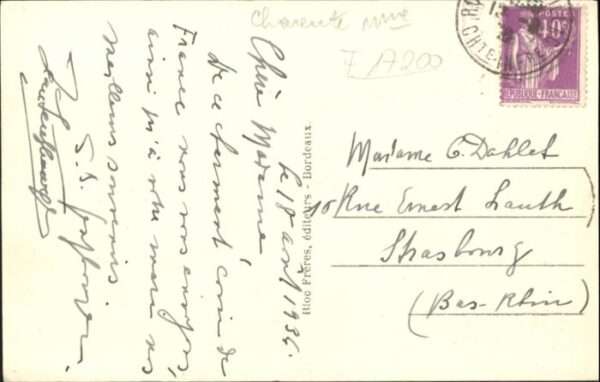 Charente mme
7 A200
le 18 août 1936.
Chère Madame
De ce charmant coin de
France nous vous envoyons,
ainsi qu'à votre mari nos
meilleurs souvenirs
Bloc Frères, éditeurs - Bordeaux
POSTES
40c
REPUBLIQUE FRANÇAISE
CHTE-INFRE
Madame C. Dahlet
10 Rue Ernest Lauth
Strasbourg
(Bas-Rhin)